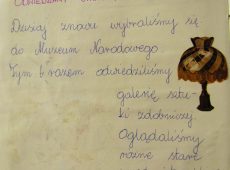 Dzisiaj znowu wybraliśmy się
do Muzeum Narodowego
Tym razem odwiedziliśmy
galerię sztu-
ki zdobniczej
Oglądaliśmy
różne stare